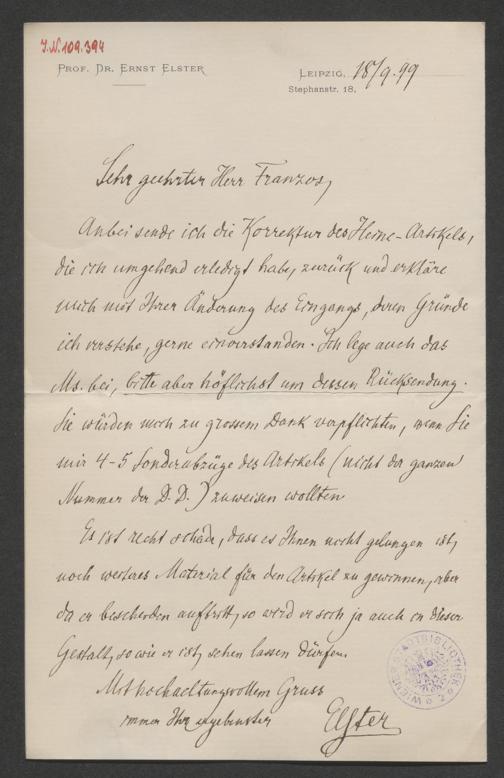 J.N. 109.394
PROF. DR. ERNST ELSTER
LEIPZIG, 18/9.99
Stephanstr. 18.
Sehr geehrter Herr Franzos,
Anbei sende ich die Korrektur des Heine-Artikels,
die ich umgehend erledigt habe, zurück und erkläre
mich mit Ihrer Änderung des Eingangs, deren Gründe
ich verstehe, gerne einverstanden. Ich lege auch das
Ms. bei, bitte aber höflichst um dessen Rücksendung.
Sie würden mich zu grossem Dank verpflichten, wenn Sie
mir 4-5 Sonderabzüge des Artikels (nicht der ganzen
Nummer der D. D.) zuweisen wollten.
Es ist recht schade, dass es Ihnen nicht gelungen ist,
noch weiteres Material für den Artikel zu gewinnen, aber
da er bescheiden auftritt, so wird er sich ja auch in dieser
Gestalt, so wie er ist, sehen lassen dürfen.
Mit hochachtungsvollem Gruss
immer Ihr ergebenster
Elster
WIENER STADTBIBLIOTHEK